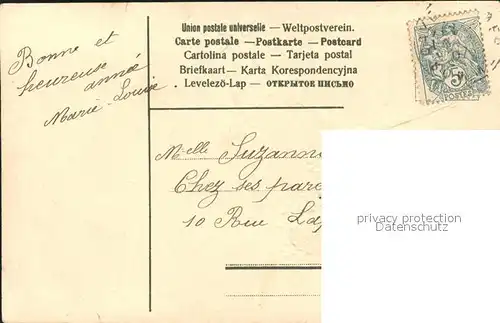 Union postale universelle — Weltpostverein.
Carte postale — Postkarte — Postcard
Cartolina postale — Tarjeta postal
Briefkaart — Karta Korespondencyjna
Levelező-Lap — ОТКРЫТОЕ ПИСЬМО
Bonne et
heureuse
année
Marie-Louise
Melle Suzanne
Chez ses pare
10 Rue La
5
POSTES
privacy protection
Datenschutz